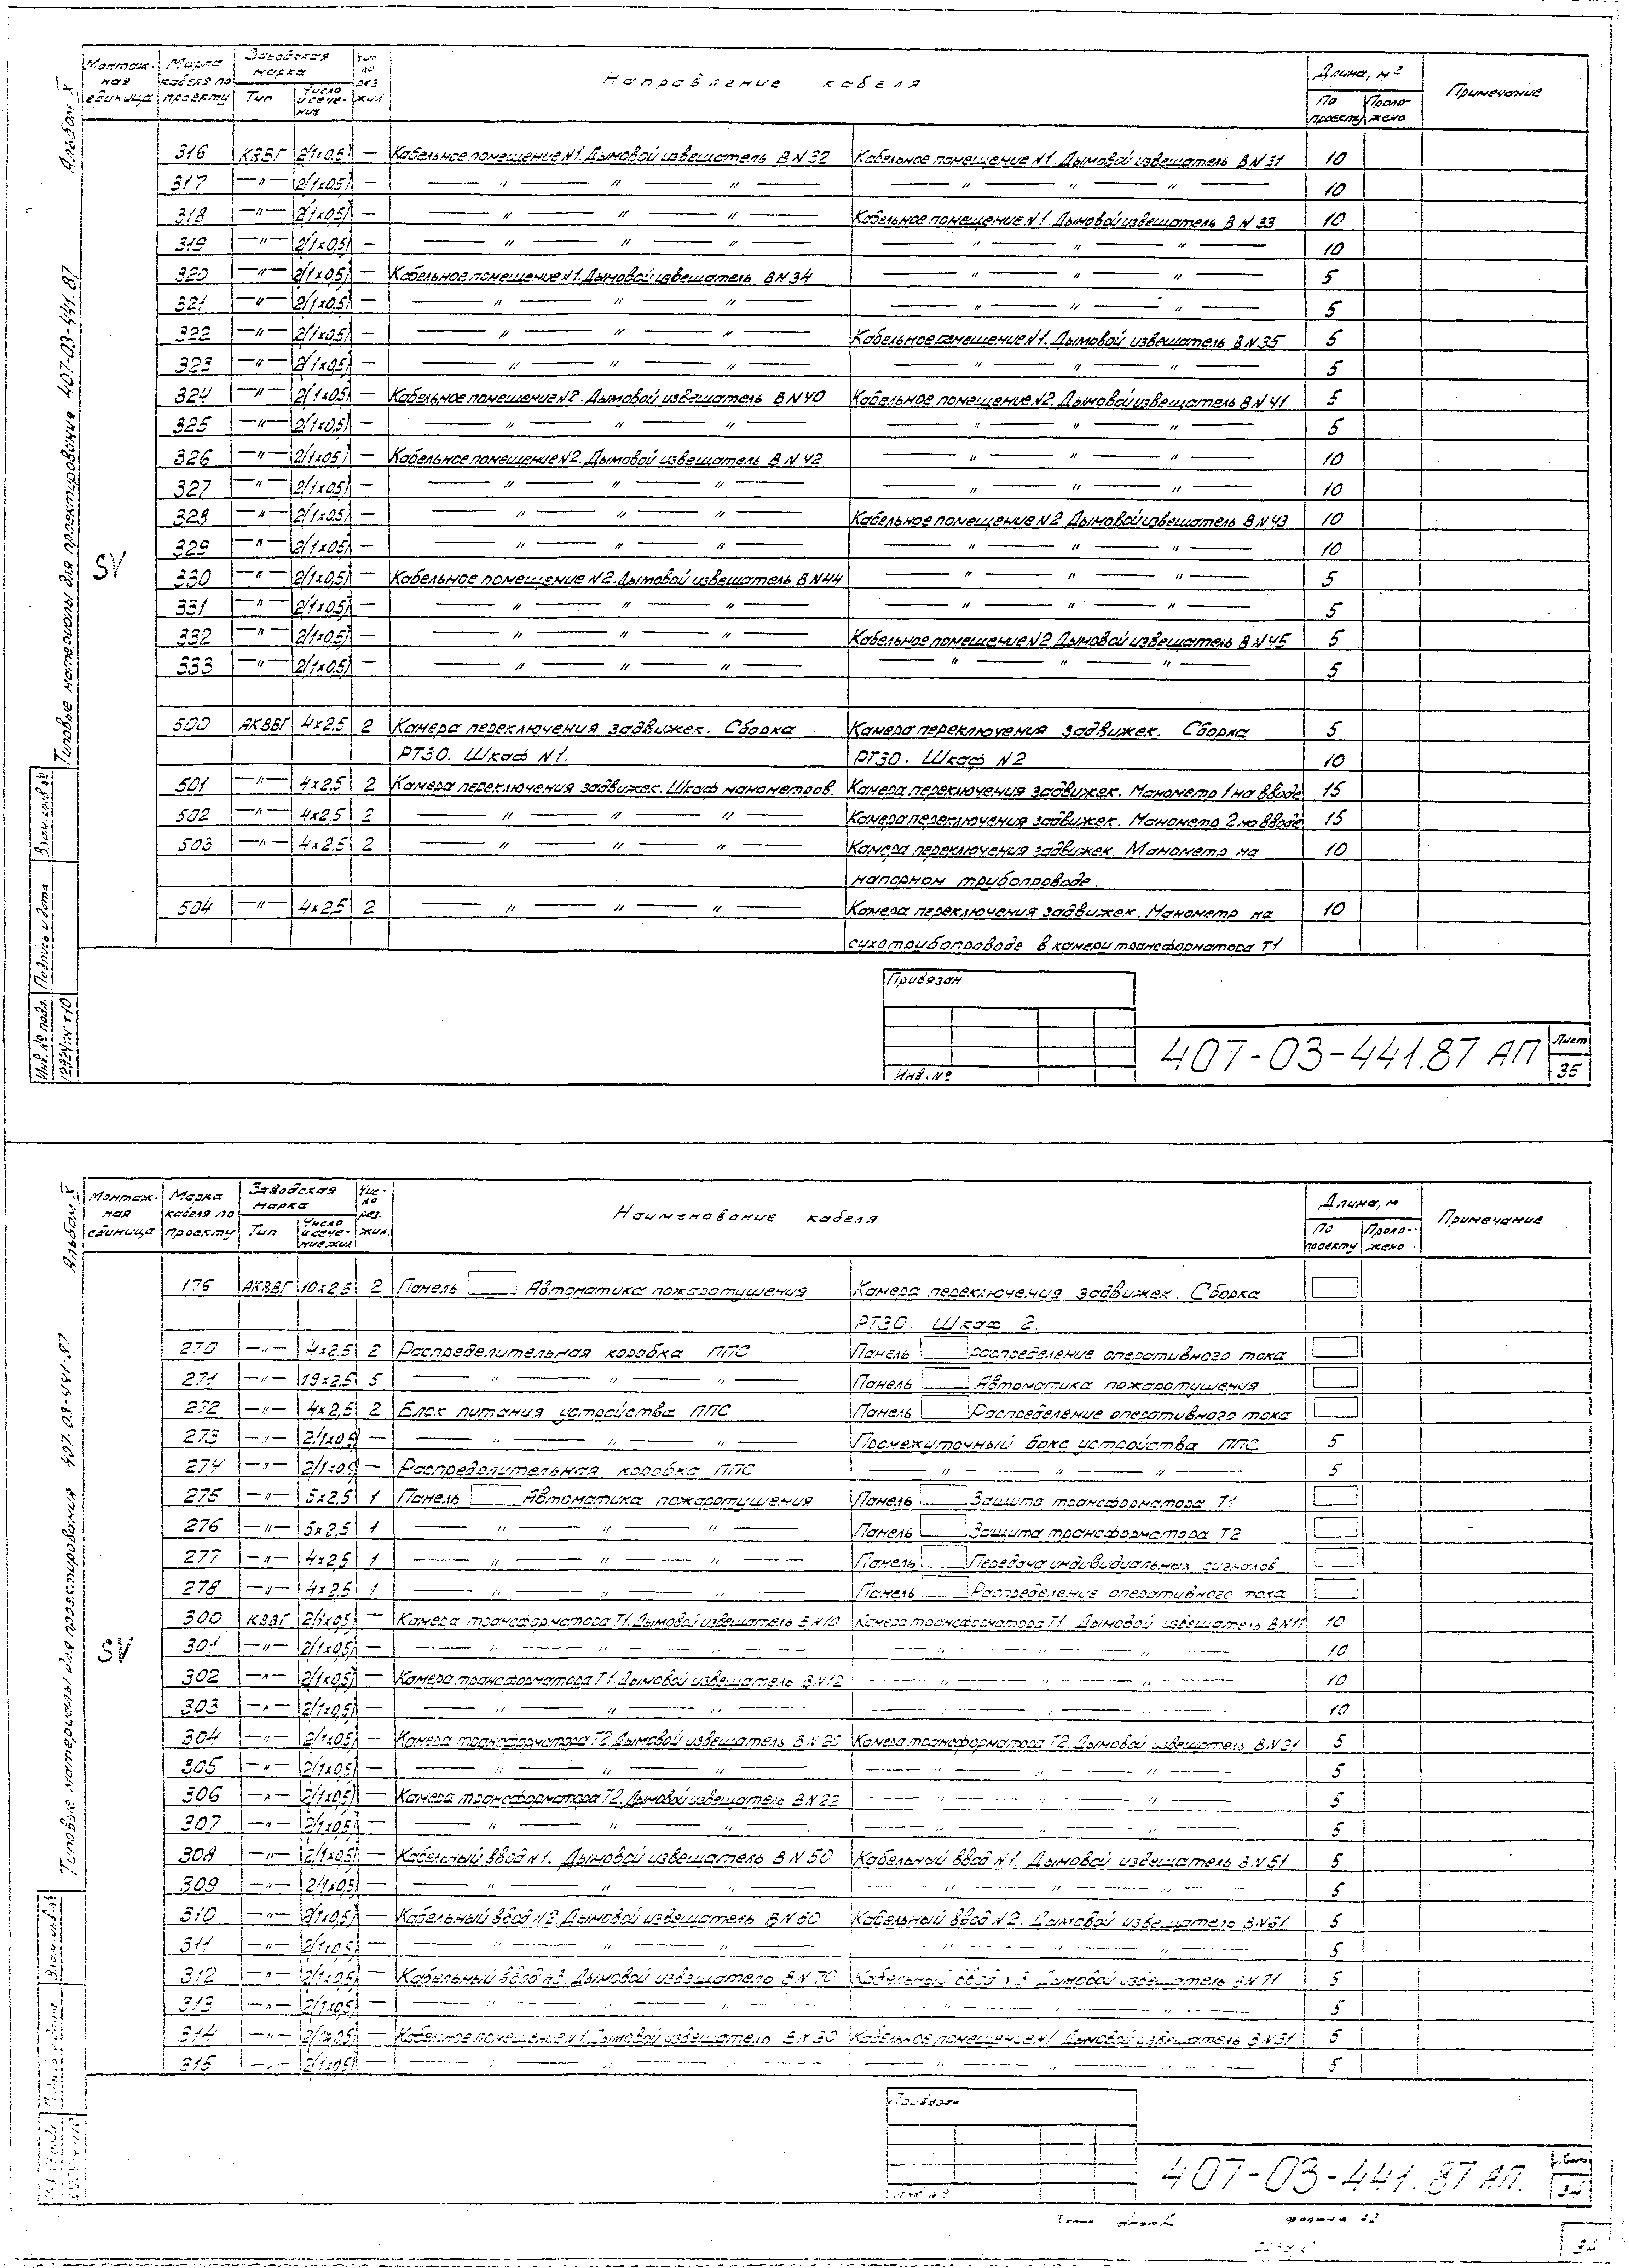 Альбом X
Типовые материалы для проектирования 407-03-441.87
Монтаж-ная единица | Марка кабеля по проекту | Заводская марка | Чис-ло рез. жил. | Направление кабеля | Длина, м² | Примечание
Тип | Число и сече-ние | По проекту | Проло-жено
316 КВВГ 2(1×0,5) — Кабельное помещение N1. Дымовой извещатель В N 32 Кабельное помещение N1. Дымовой извещатель В N 31 10
317 —"— 2(1×0,5) — —"—"—"— —"—"—"— 10
318 —"— 2(1×0,5) — —"—"—"— Кабельное помещение N1. Дымовой извещатель В N 33 10
319 —"— 2(1×0,5) — —"—"—"— —"—"—"— 10
320 —"— 2(1×0,5) — Кабельное помещение N1. Дымовой извещатель В N 34 —"—"—"— 5
321 —"— 2(1×0,5) — —"—"—"— —"—"—"— 5
322 —"— 2(1×0,5) — —"—"—"— Кабельное помещение N1. Дымовой извещатель В N 35 5
323 —"— 2(1×0,5) — —"—"—"— —"—"—"— 5
324 —"— 2(1×0,5) — Кабельное помещение N2. Дымовой извещатель В N 40 Кабельное помещение N2. Дымовой извещатель В N 41 5
325 —"— 2(1×0,5) — —"—"—"— —"—"—"— 5
326 —"— 2(1×0,5) — Кабельное помещение N2. Дымовой извещатель В N 42 —"—"—"— 10
327 —"— 2(1×0,5) — —"—"—"— —"—"—"— 10
328 —"— 2(1×0,5) — —"—"—"— Кабельное помещение N2 Дымовой извещатель В N 43 10
329 —"— 2(1×0,5) — —"—"—"— —"—"—"— 10
SV
330 —"— 2(1×0,5) — Кабельное помещение N2. Дымовой извещатель В N 44 —"—"—"— 5
331 —"— 2(1×0,5) — —"—"—"— —"—"—"— 5
332 —"— 2(1×0,5) — —"—"—"— Кабельное помещение N2. Дымовой извещатель В N 45 5
333 —"— 2(1×0,5) — —"—"—"— —"—"—"— 5
500 АКВВГ 4×2,5 2 Камера переключения задвижек. Сборка Камера переключения задвижек. Сборка 5
РТЗО. Шкаф N1. РТЗО. Шкаф N2 10
501 —"— 4×2,5 2 Камера переключения задвижек. Шкаф манометров. Камера переключения задвижек. Манометр 1 на вводе 15
502 —"— 4×2,5 2 —"—"—"— Камера переключения задвижек. Манометр 2 на вводе 15
503 —"— 4×2,5 2 —"—"—"— Камера переключения задвижек. Манометр на 10
напорном трубопроводе.
504 —"— 4×2,5 2 —"—"—"— Камера переключения задвижек. Манометр на 10
сухотрубопроводе в камеру трансформатора Т1
Взам. инв. №
Подпись и дата
Инв. № подл.
12924тм т10
Привязан
Инв. №
407-03-441.87 АП
Лист
35
Альбом X
Типовые материалы для проектирования 407-03-441-87
Монтаж-ная единица | Марка кабеля по проекту | Заводская марка | Чис-ло рез. жил. | Наименование кабеля | Длина, м | Примечание
Тип | Число и сече-ние жил | По проекту | Проло-жено
175 АКВВГ 10×2,5 2 Панель Автоматика пожаротушения Камера переключения задвижек. Сборка
РТЗО. Шкаф 2.
270 —"— 4×2,5 2 Распределительная коробка ППС Панель распределение оперативного тока
271 —"— 19×2,5 5 —"—"—"— Панель Автоматика пожаротушения
272 —"— 4×2,5 2 Блок питания устройства ППС Панель Распределение оперативного тока
273 —"— 2(1×0,5) — —"—"—"— Промежуточный бокс устройства ППС 5
274 —"— 2(1×0,5) — Распределительная коробка ППС —"—"—"— 5
275 —"— 5×2,5 1 Панель Автоматика пожаротушения Панель Защита трансформатора Т1
276 —"— 5×2,5 1 —"—"—"— Панель Защита трансформатора Т2
277 —"— 4×2,5 1 —"—"—"— Панель Передача индивидуальных сигналов
278 —"— 4×2,5 1 —"—"—"— Панель Распределение оперативного тока
300 КВВГ 2(1×0,5) — Камера трансформатора Т1. Дымовой извещатель В N 10 Камера трансформатора Т1. Дымовой извещатель В N 11 10
SV
301 —"— 2(1×0,5) — —"—"—"— —"—"—"— 10
302 —"— 2(1×0,5) — Камера трансформатора Т1. Дымовой извещатель В N 12 —"—"—"— 10
303 —"— 2(1×0,5) — —"—"—"— —"—"—"— 10
304 —"— 2(1×0,5) — Камера трансформатора Т2. Дымовой извещатель В N 20 Камера трансформатора Т2. Дымовой извещатель В N 21 5
305 —"— 2(1×0,5) — —"—"—"— —"—"—"— 5
306 —"— 2(1×0,5) — Камера трансформатора Т2. Дымовой извещатель В N 22 —"—"—"— 5
307 —"— 2(1×0,5) — —"—"—"— —"—"—"— 5
308 —"— 2(1×0,5) — Кабельный ввод N1. Дымовой извещатель В N 50 Кабельный ввод N1. Дымовой извещатель В N 51 5
309 —"— 2(1×0,5) — —"—"—"— —"—"—"— 5
310 —"— 2(1×0,5) — Кабельный ввод N2. Дымовой извещатель В N 60 Кабельный ввод N2. Дымовой извещатель В N 61 5
311 —"— 2(1×0,5) — —"—"—"— —"—"—"— 5
312 —"— 2(1×0,5) — Кабельный ввод N3. Дымовой извещатель В N 70 Кабельный ввод N3. Дымовой извещатель В N 71 5
313 —"— 2(1×0,5) — —"—"—"— —"—"—"— 5
314 —"— 2(1×0,5) — Кабельное помещение N1. Дымовой извещатель В N 30 Кабельное помещение N1 Дымовой извещатель В N 31 5
315 —"— 2(1×0,5) — —"—"—"— —"—"—"— 5
Взам. инв. №
Привязан
407-03-441.87 АП.
34